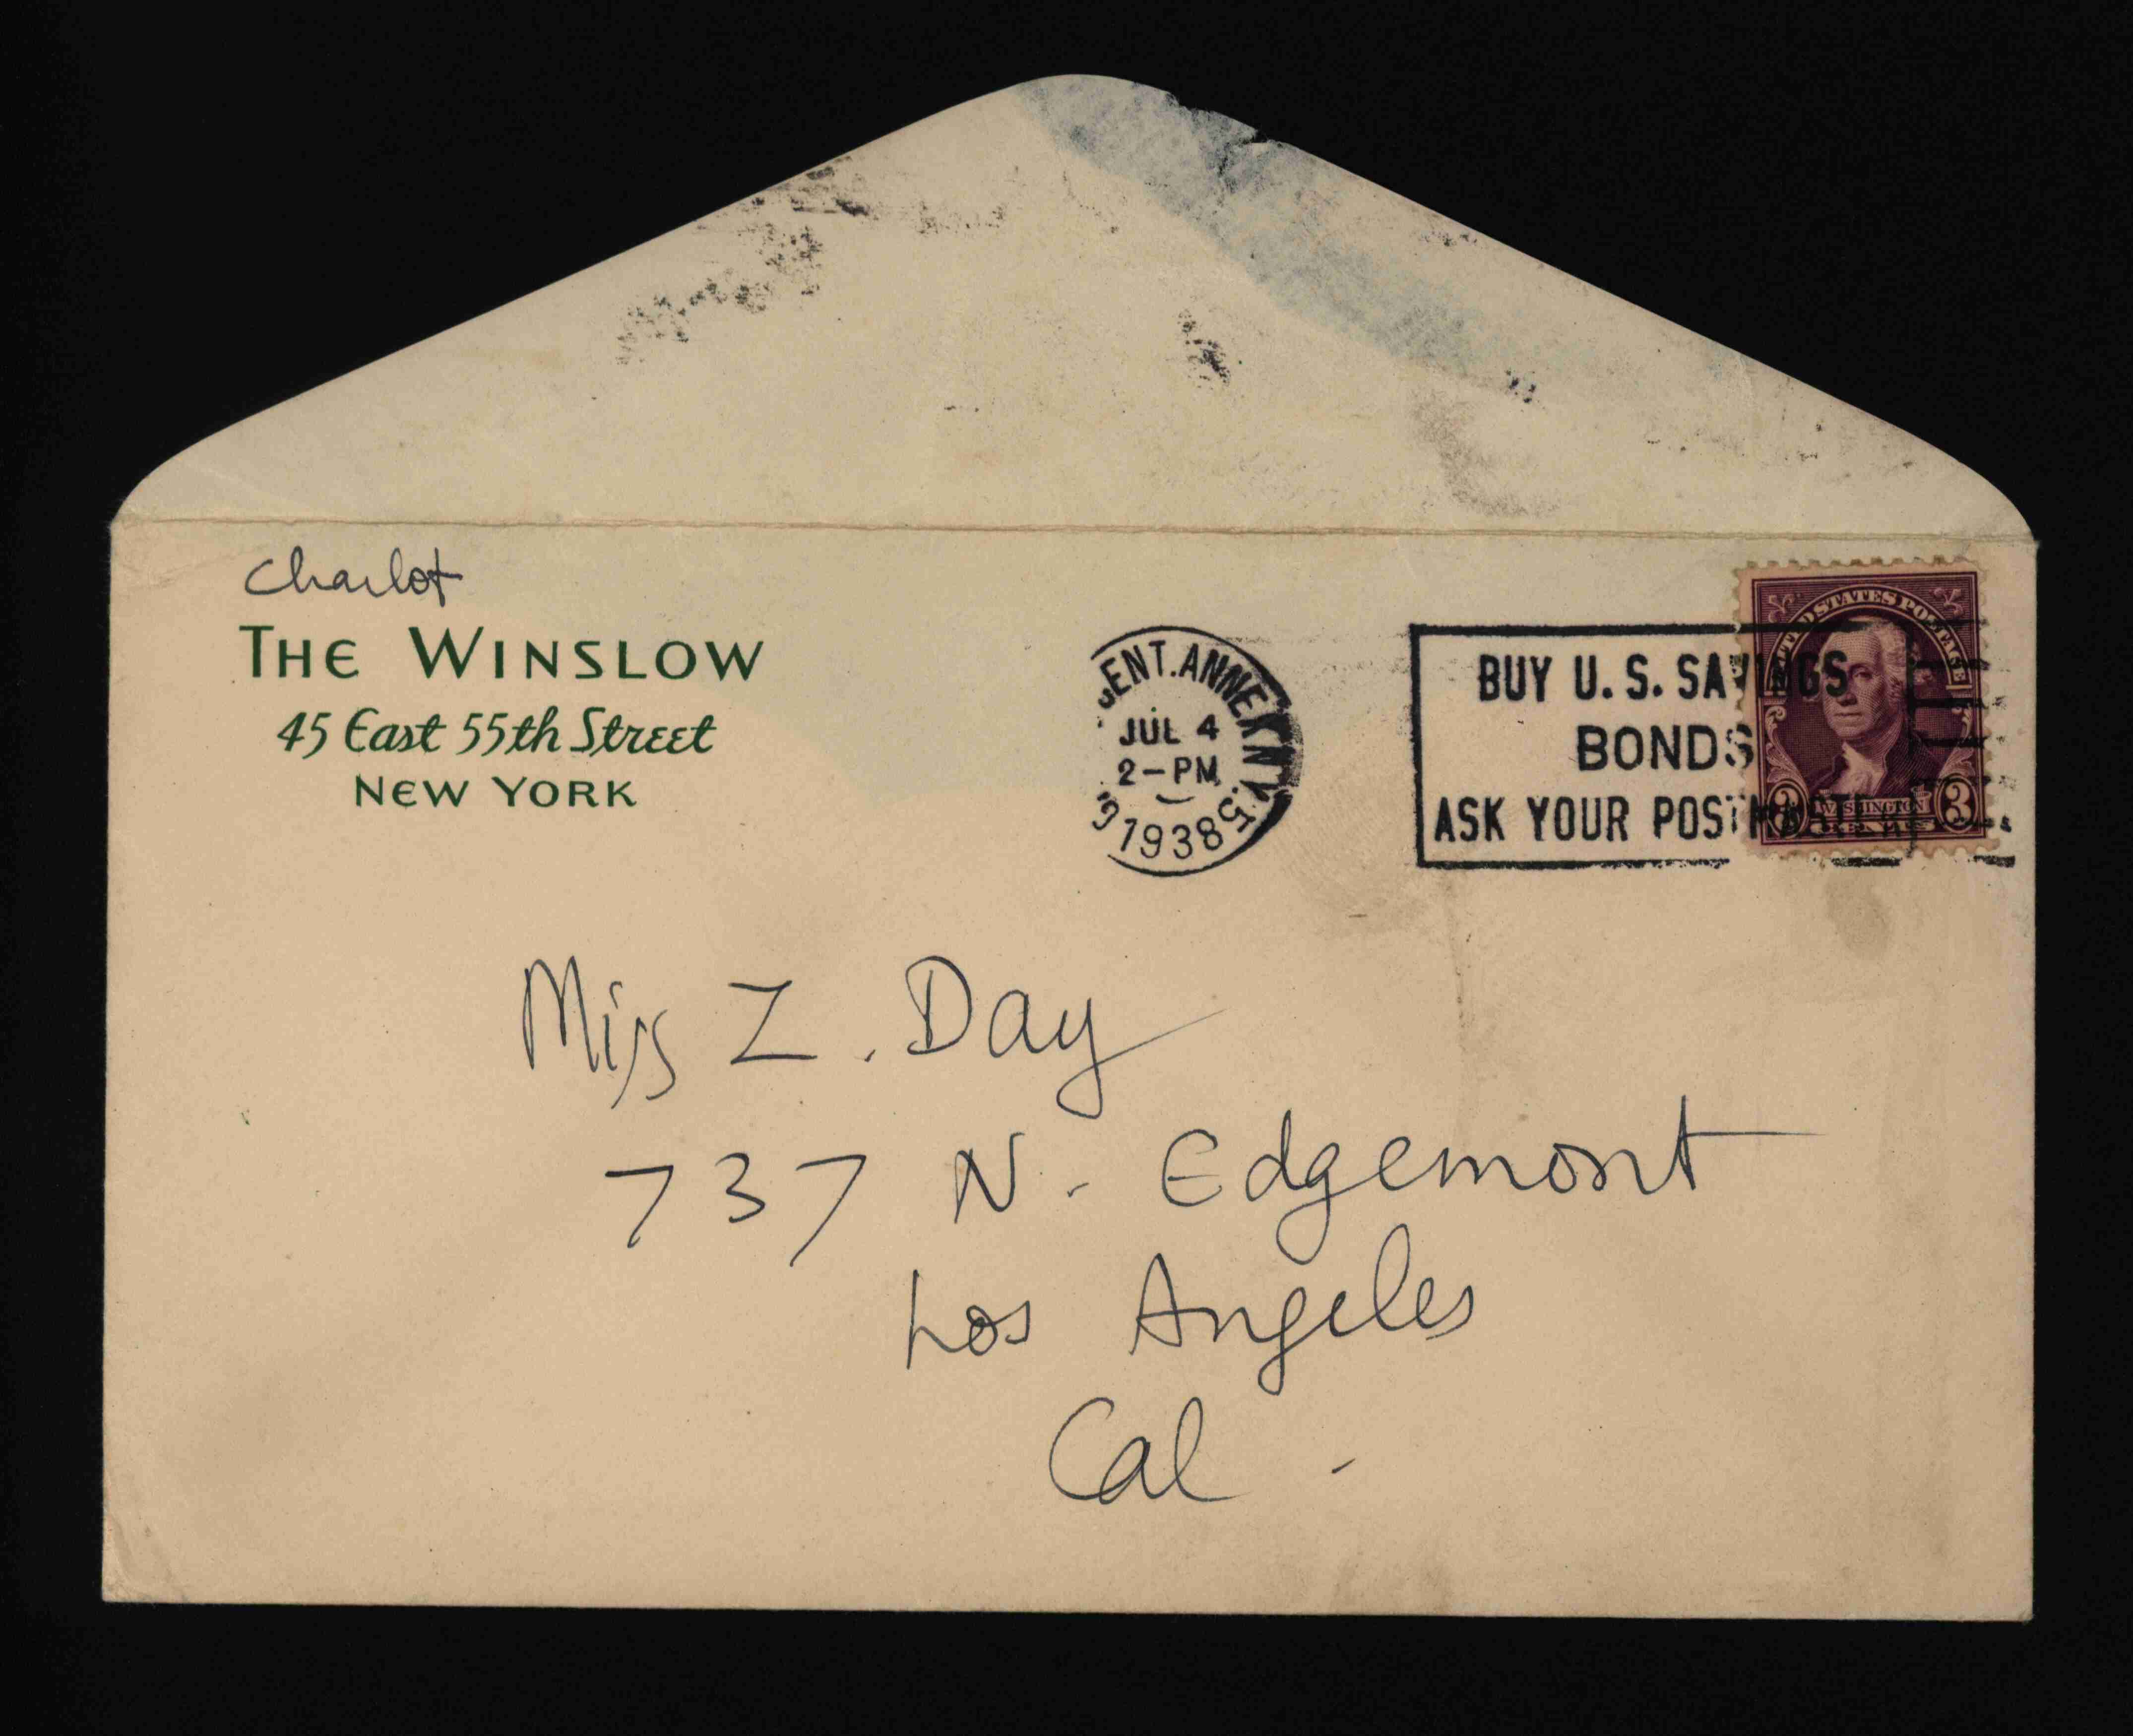 Charlot
THE WINSLOW
45 East 55th Street
NEW YORK
CENT. ANNEX N.Y.
JUL 4
2-PM
1938
BUY U.S. SAVINGS
BONDS
ASK YOUR POSTMASTER
UNITED STATES POSTAGE
3 WASHINGTON 3
Miss Z. Day
737 N. Edgemont
Los Angeles
Cal.